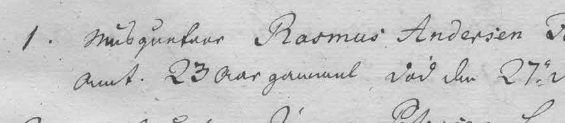 1. Musqueteer Rasmus Andersen
Amt. 23 Aar gammel død den 27de